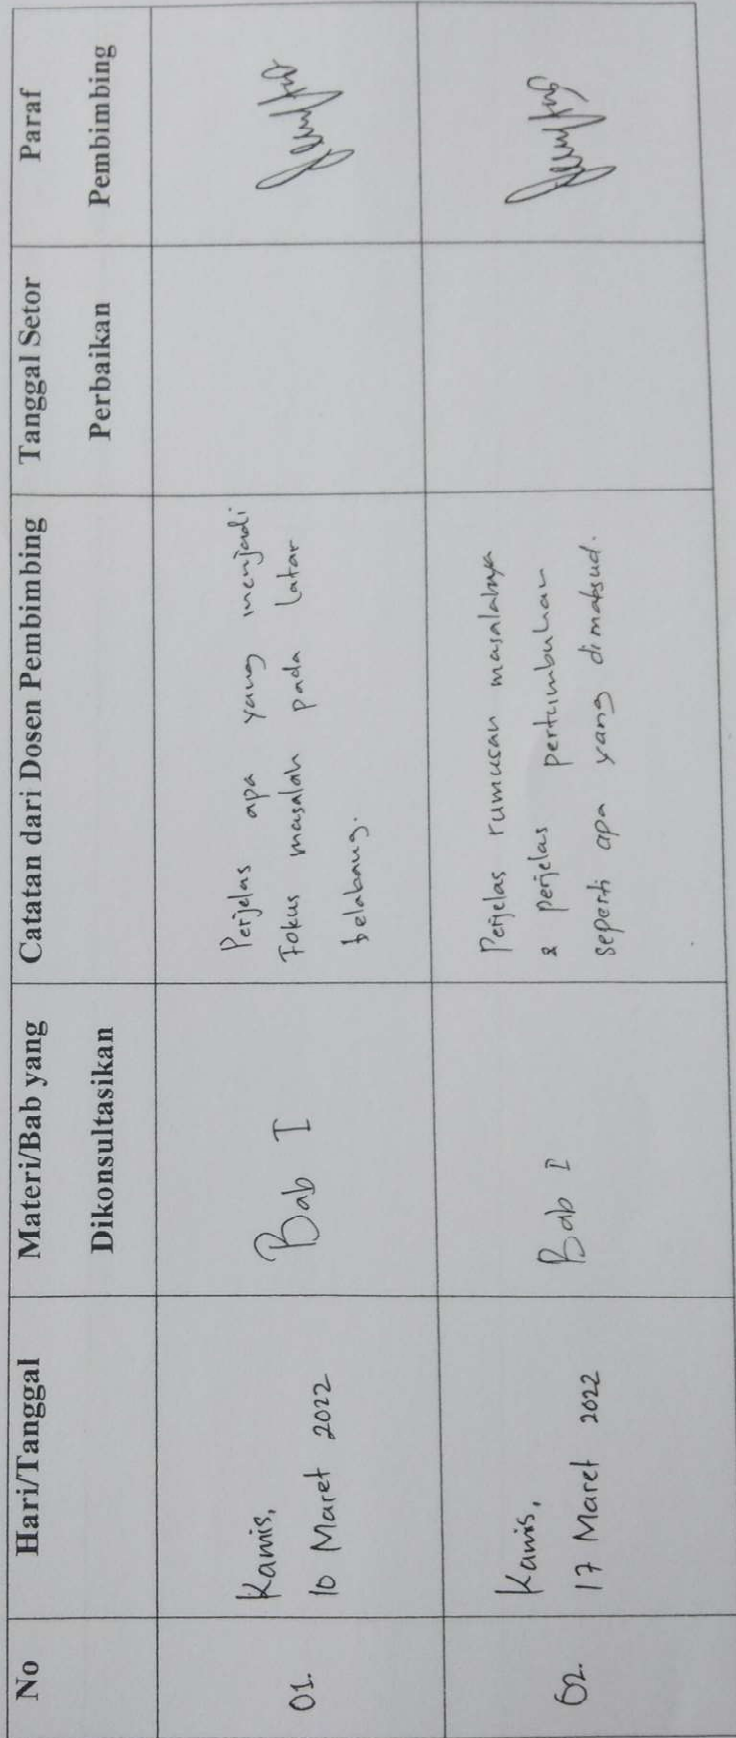 No
Hari/Tanggal
Materi/Bab yang
Dikonsultasikan
Catatan dari Dosen Pembimbing
Tanggal Setor
Perbaikan
Paraf
Pembimbing
01.
Kamis,
10 Maret 2022
Bab I
Perjelas apa yang menjadi
Fokus masalah pada latar
belakang.
02.
Kamis,
17 Maret 2022
Bab I
Perjelas rumusan masalahnya
& perjelas pertumbuhan
seperti apa yang dimaksud.